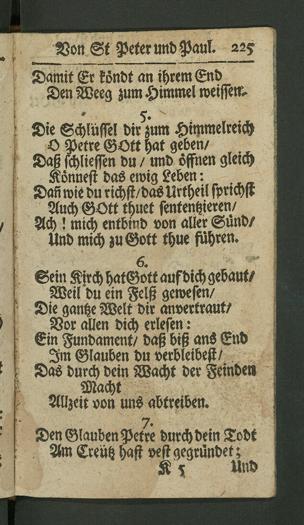 Von St Peter und Paul. 225
Damit Er köndt an ihrem End
Den Weeg zum Himmel weissen.
5.
Die Schlüssel dir zum Himmelreich
O Petre GOtt hat geben/
Daß schliessen du/ und öffnen gleich
Könnest das ewig Leben:
Dañ wie du richst/das Urtheil sprichst
Auch GOtt thuet sententzieren/
Ach! mich entbind von aller Sünd/
Und mich zu Gott thue führen.
6.
Sein Kirch hat Gott auf dich gebaut/
Weil du ein Felß gewesen/
Die gantze Welt dir anvertraut/
Vor allen dich erlesen:
Ein Fundament/ daß biß ans End
Im Glauben du verbleibest/
Das durch dein Wacht der Feinden
Macht
Allzeit von uns abtreiben.
7.
Den Glauben Petre durch dein Todt
Am Creütz hast vest gegründet;
K 5 Und